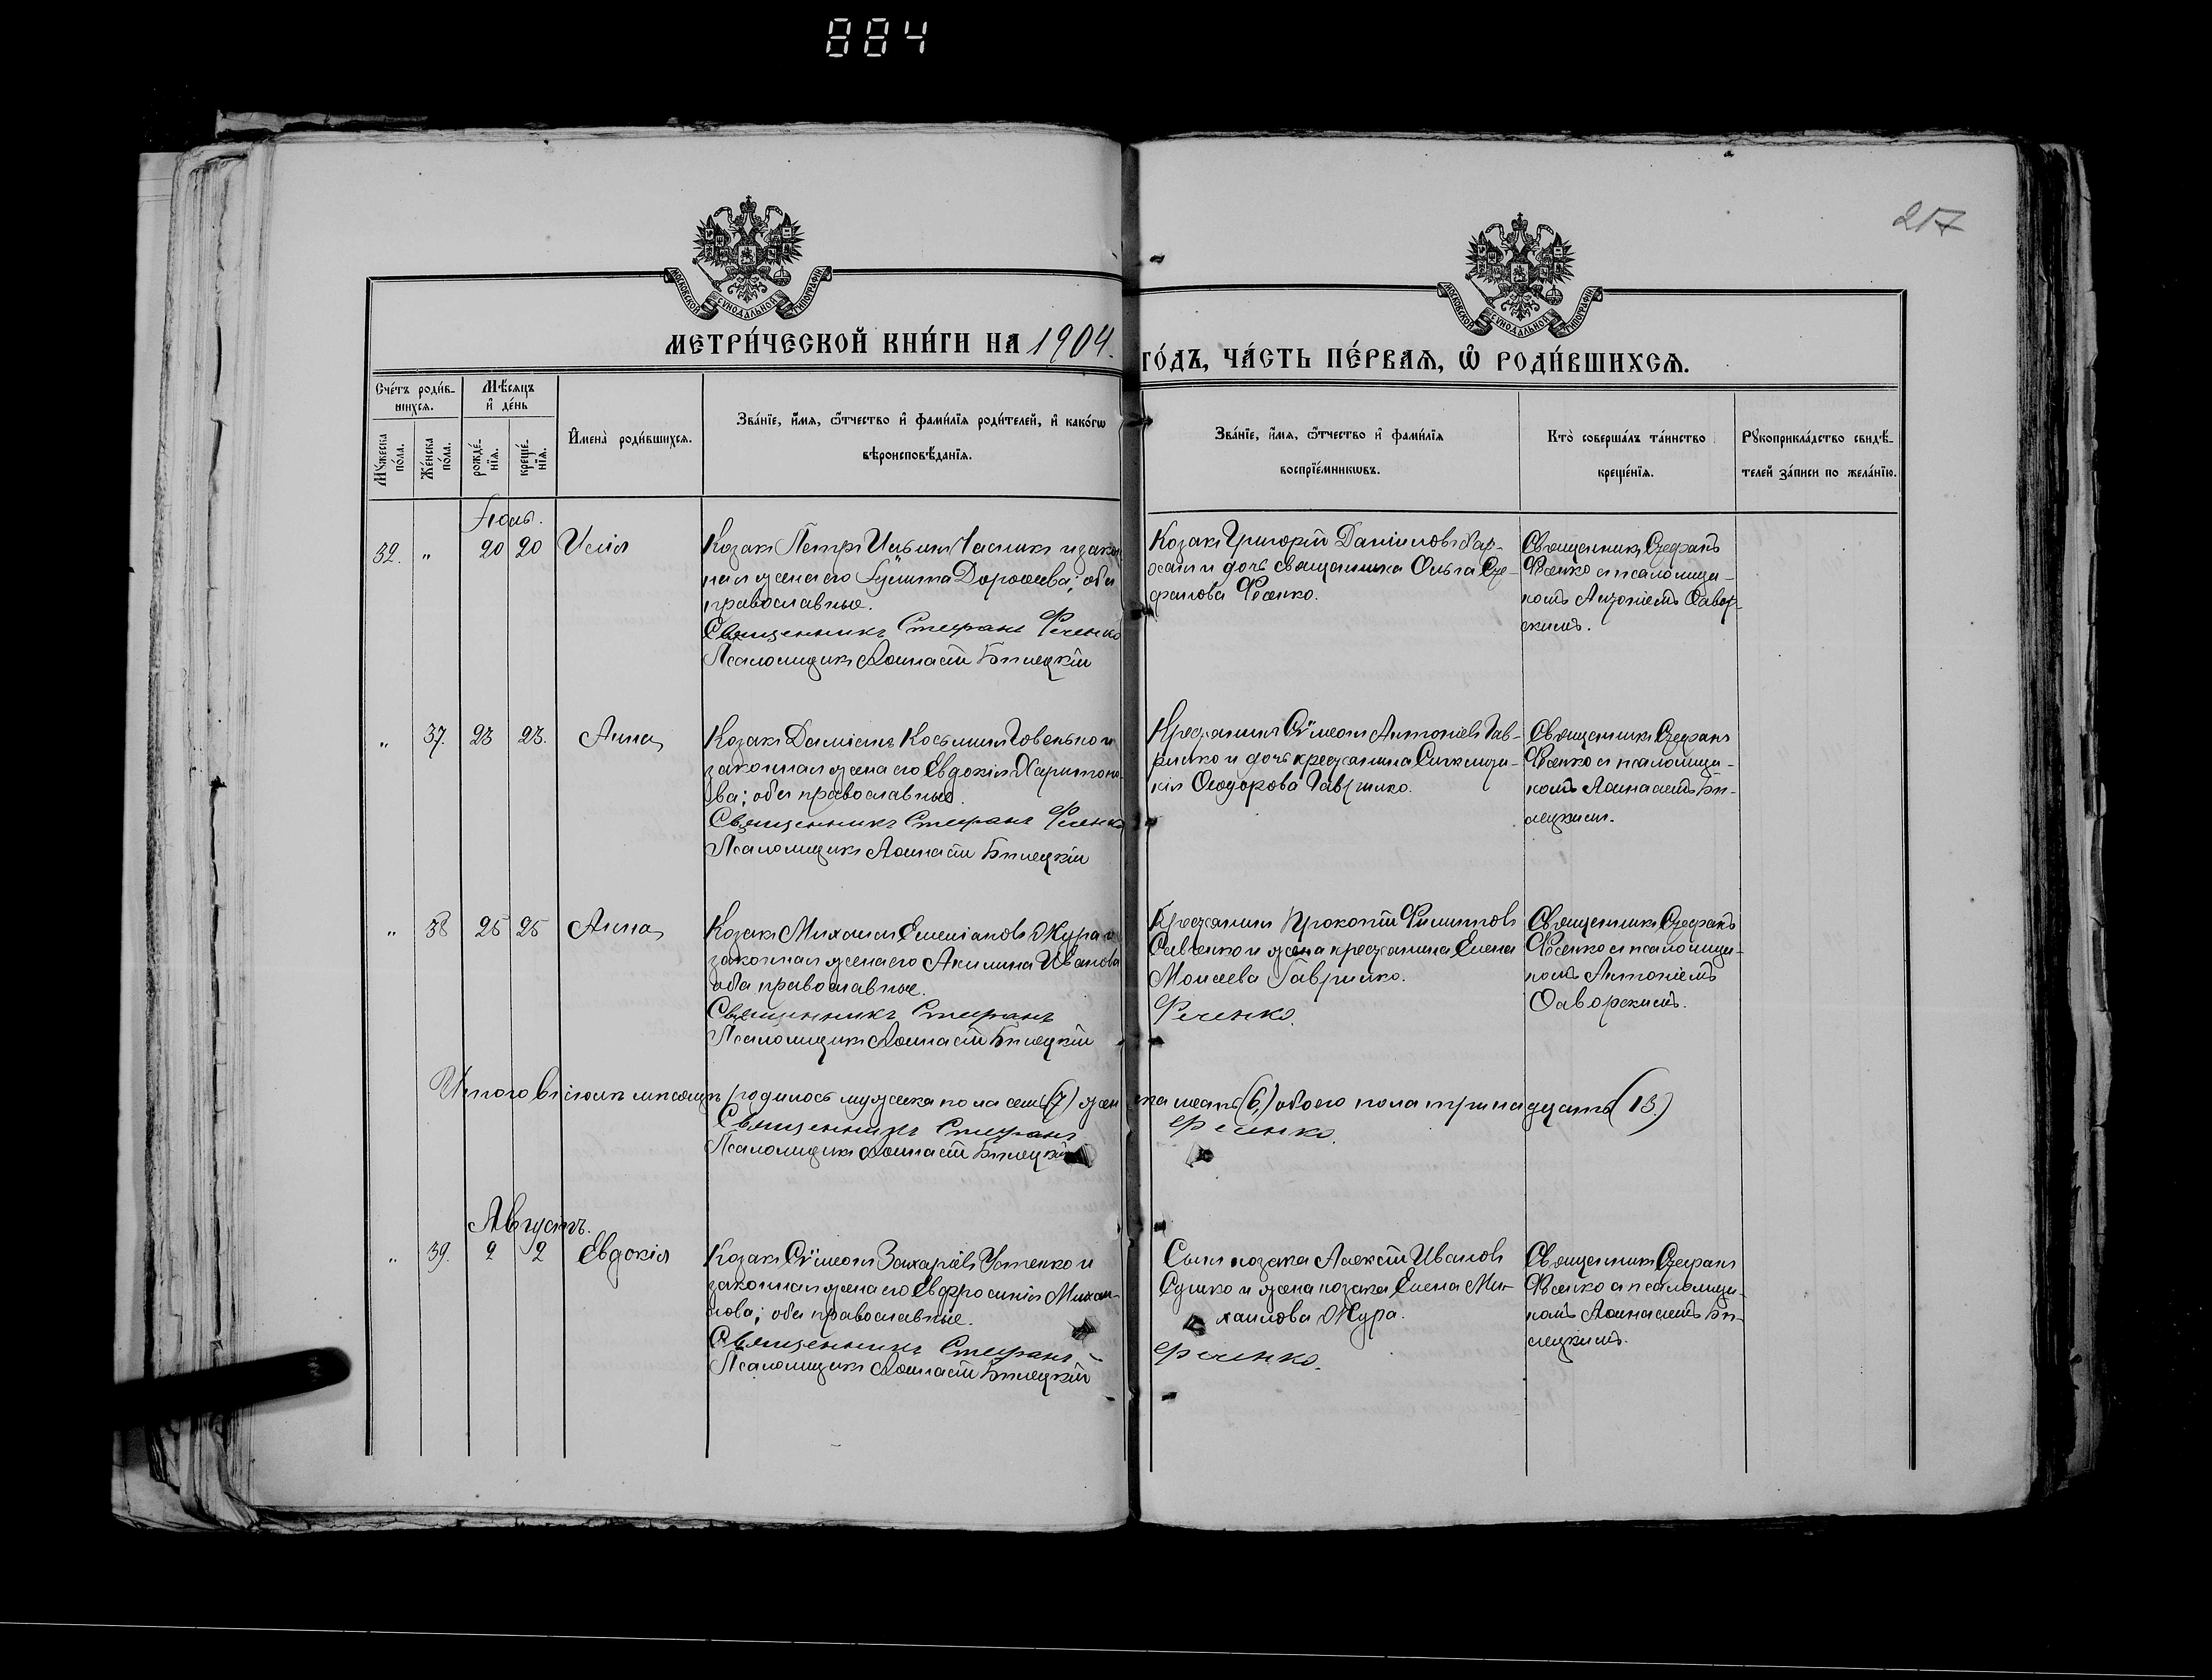 884
217
МОСКОВСКОЙ СѴНОДАЛЬНОЙ ТИПОГРАФІИ
МОСКОВСКОЙ СѴНОДАЛЬНОЙ ТИПОГРАФІИ
МЕТРИ́ЧЕСКОЙ КНИ́ГИ НА 1904. ГО́ДЪ, ЧА́СТЬ ПЕ́РВАЯ, Ѽ РОДИ́ВШИХСЯ.
Сче́тъ роди́в-
шихся.
Мѣ́сяцъ
и҆ де́нь
Мꙋ́жеска по́ла.
Же́нска по́ла.
рожде́-
нїя.
креще́-
нїя.
И҆мена̀ роди́вшихся.
Зва́нїе, и҆́мя, ѻ҆́тчество и҆ фами́лїя роди́телей, и҆ како́гѡ
вѣроисповѣ́данїя.
Зва́нїе, и҆́мя, ѻ҆́тчество и҆ фами́лїя
воспрїе́мникωвъ.
Кто̀ соверша́лъ та́инство
креще́нїя.
Рꙋкоприкла́дство свидѣ́-
телей за́писи по жела́нїю.
Іюль.
32. " 20 20 Илія
Козакъ Петръ Ильинъ Часникъ и закон
ная жена его Іулитта Дорофеева; оба
православные.
Священникъ Стефанъ Фесенко
Псаломщикъ Аѳанасій Бѣлецкій
Козакъ Григорій Даніиловъ Хар-
и дочь священника Ольга Сте-
фанова Фесенко.
Священникъ Стефанъ
Фесенко съ псаломщи-
комъ Антоніемъ Ѳавор-
скимъ.
" 37. 23 23. Анна
Козакъ Даміанъ Косьминъ и
законная жена его Евдокія Харитоно-
ва; оба православные.
Священникъ Стефанъ Фесенко
Псаломщикъ Аѳанасій Бѣлецкій
Крестьянинъ Сѵмеонъ Антоніевъ Гав-
рилко и дочь крестьянина Синклити-
кія Ѳеодорова Гаврилко.
Священникъ Стефанъ
Фесенко съ псаломщи-
комъ Аѳанасіемъ Бѣ-
лецкимъ.
" 38 25 25 Анна
Козакъ Михаилъ Емеліановъ Жура и
законная жена его Акилина Иванова
оба православные.
Священникъ Стефанъ Фесенко.
Псаломщикъ Аѳанасій Бѣлецкій
Крестьянинъ Прокопій Филипповъ
Савченко и жена крестьянина Елена
Моисеева Гаврилко.
Священникъ Стефанъ
Фесенко съ псаломщи-
комъ Антоніемъ
Ѳаворскимъ.
Итого въ іюлѣ мѣсяцѣ родилось мужеска пола семь (7) женска шесть (6.) обоего пола тринадцать (13.)
Священникъ Стефанъ Фесенко.
Псаломщикъ Аѳанасій Бѣлецкій
Августъ.
" 39. 2 2 Евдокія
Козакъ Сѵмеонъ Захаріевъ Устенко и
законная жена его Евфросинія Михаи-
лова; оба православные.
Священникъ Стефанъ - Фесенко.
Псаломщикъ Аѳанасій Бѣлецкій
Сынъ козака Алексій Ивановъ
Сушко и жена козака Елена Ми-
хаилова Жура.
Священникъ Стефанъ
Фесенко съ псаломщи-
комъ Аѳанасіемъ Бѣ-
лецкимъ.